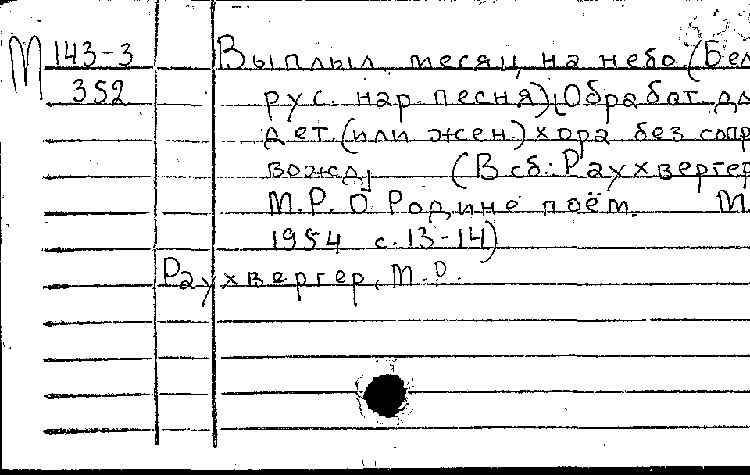 М 143-3
352
Выплыл месяц на небо (Бел
рус. нар. песня) Обработ. дл
дет. (или жен.) хора без сопр
вожд. (В сб.: Раухвергер
М.Р. О Родине поём. М.
1954 с. 13-14)
Раухвергер, М.Р.